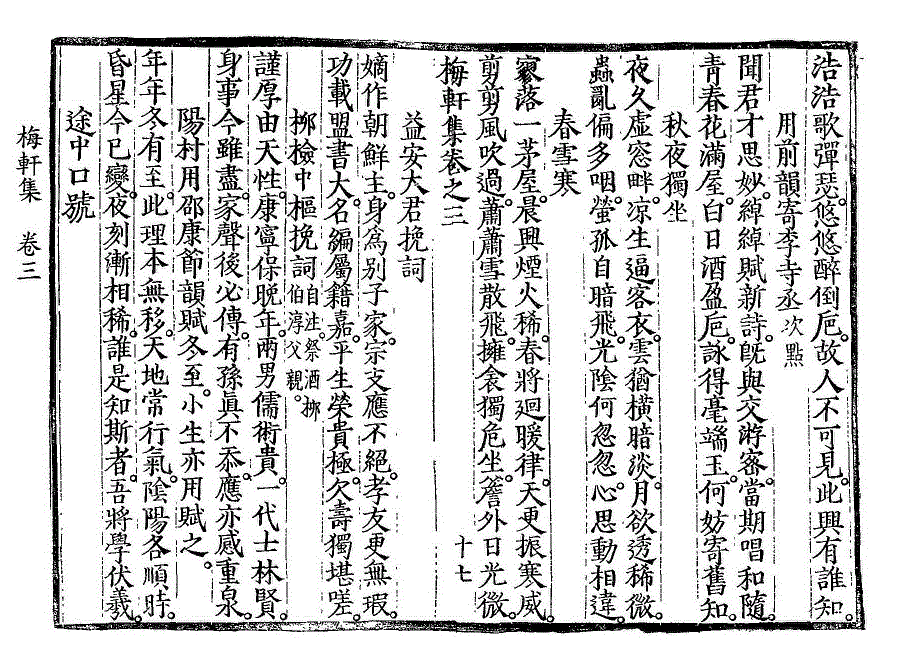 浩浩歌彈瑟。悠悠醉倒巵。故人不可見。此興有誰知。
用前韻寄李寺丞次點
聞君才思妙。綽綽賦新詩。旣與交游審。當期唱和隨。
靑春花滿屋。白日酒盈巵。詠得毫端玉。何妨寄舊知。
秋夜獨坐
夜久虛窓畔。凉生逼客衣。雲猶橫暗淡。月欲透稀微。
蟲亂偏多咽。螢孤自暗飛。光陰何忽忽。心思動相違。
春雪寒
寥落一茅屋。晨興煙火稀。春將廻暖律。天更振寒威。
剪剪風吹過。蕭蕭雪散飛。擁衾獨危坐。簷外日光微。
梅軒集卷之三 十七
益安大君挽詞
嫡作朝鮮主。身爲别子家。宗支應不絕。孝友更無瑕。
功載盟書大。名編屬籍嘉。平生榮貴極。欠壽獨堪嗟。
栁檢中樞挽詞自注。祭酒栁伯淳父親。
謹厚由天性。康寧保晩年。兩男儒術貴。一代士林賢。
身事今雖盡。家聲後必傳。有孫眞不忝。應亦感重泉。
陽村用邵康節韻賦冬至。小生亦用賦之。
年年冬有至。此理本無移。天地常行氣。陰陽各順時。
昏星今已變。夜刻漸相稀。誰是知斯者。吾將學伏羲。
途中口號
梅軒集 卷三